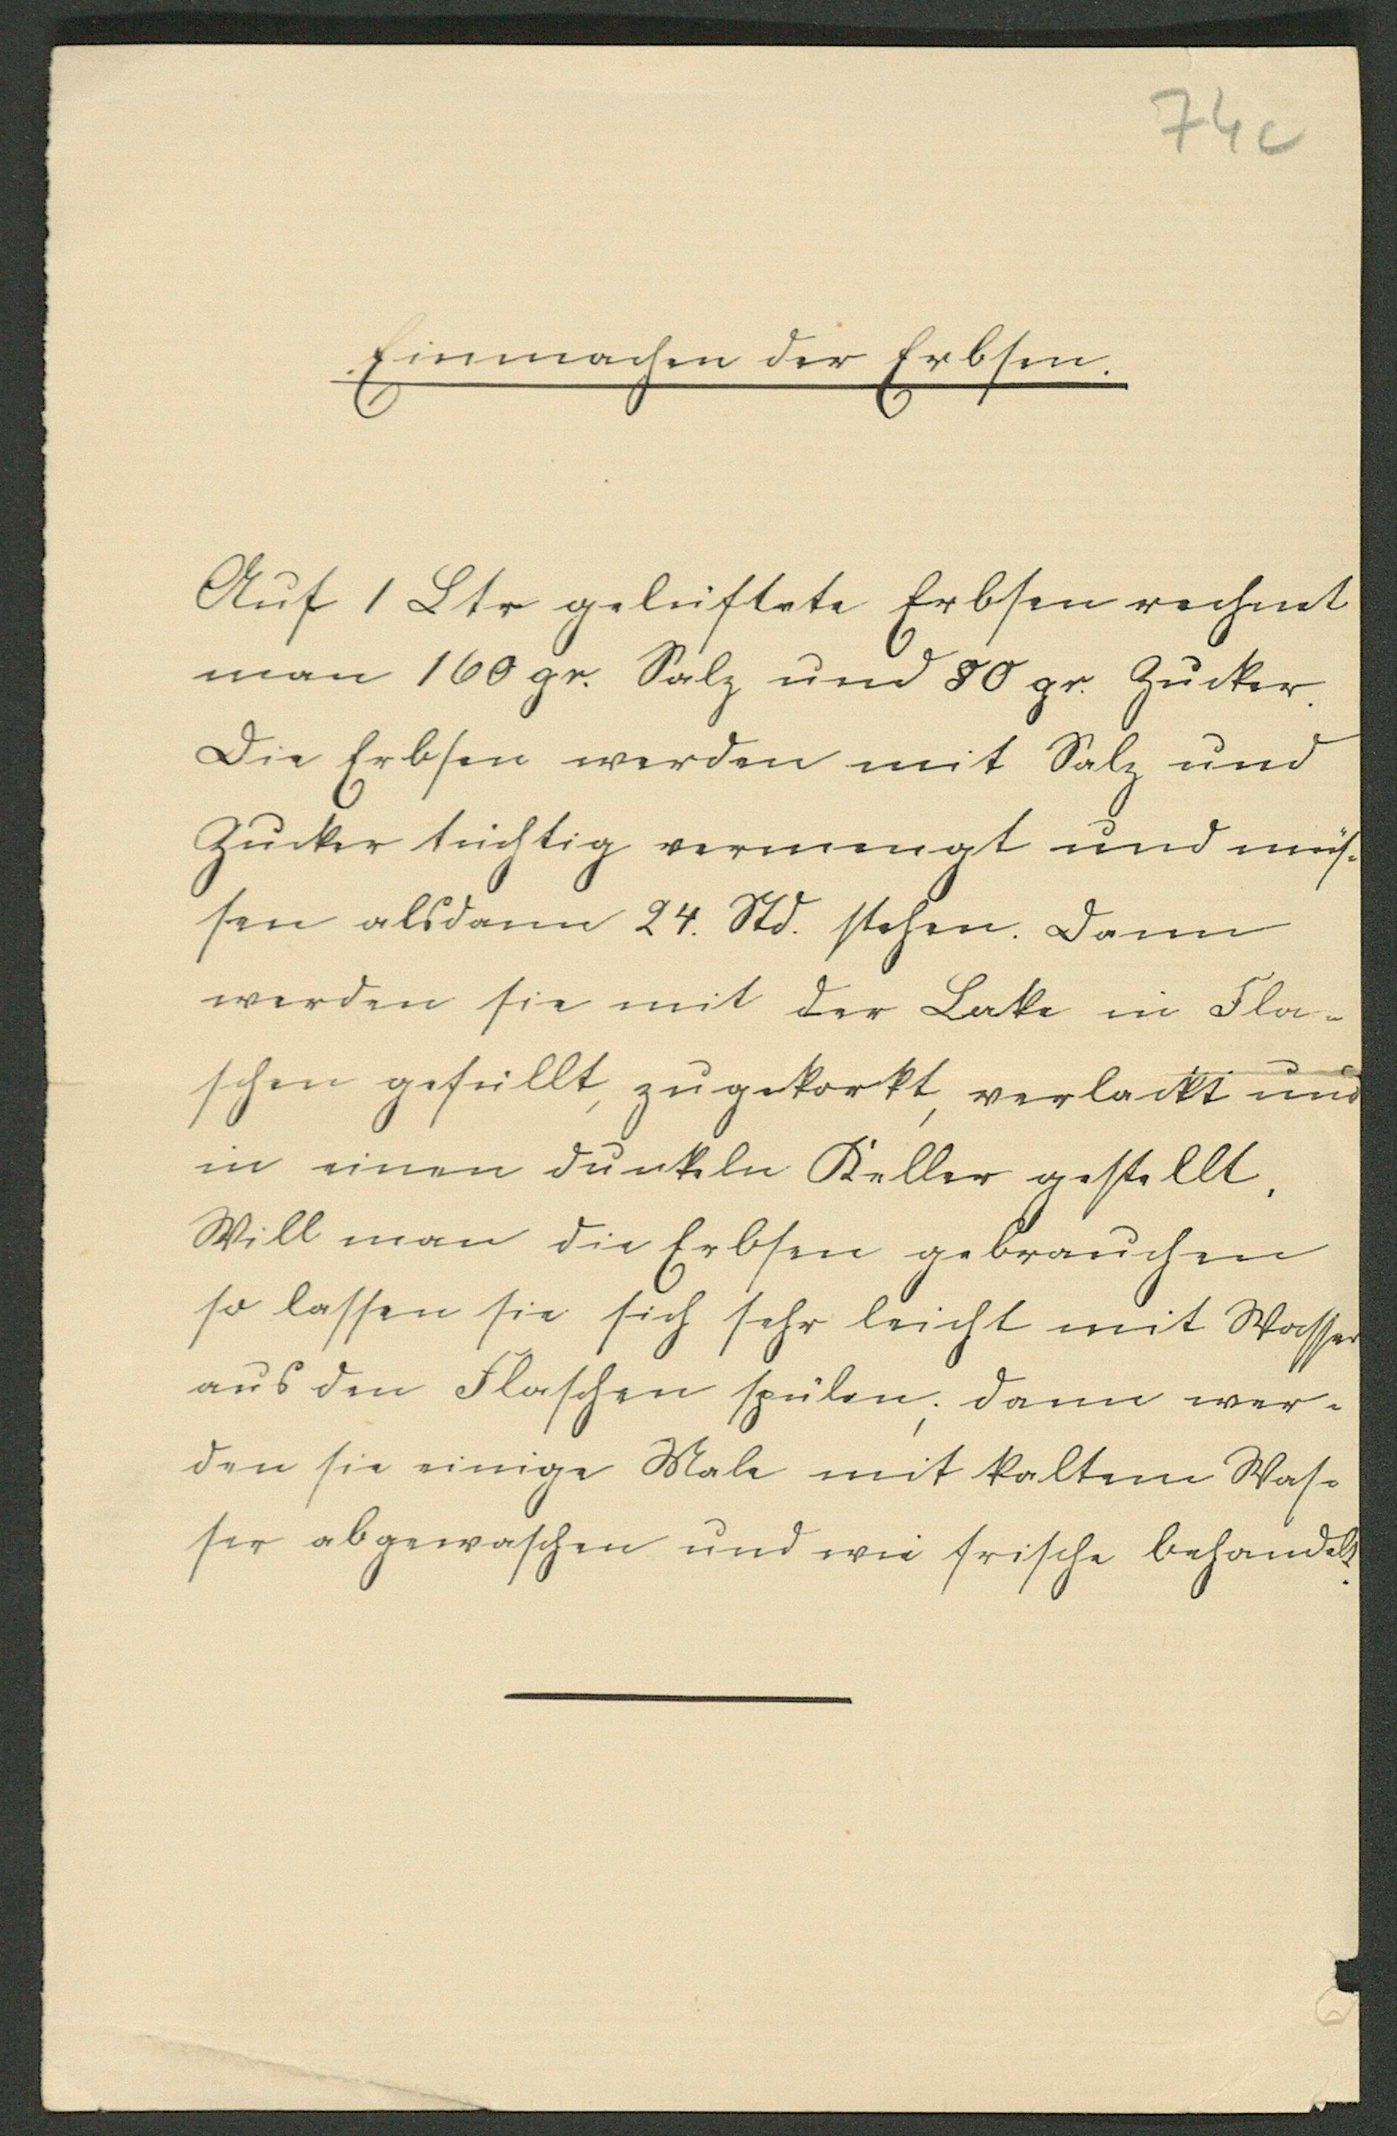 74c
Einmachen der Erbsen.
Auf 1 Ltr gelüftete Erbsen rechnet
man 160 gr. Salz und 80 gr. Zucker.
Die Erbsen werden mit Salz und
Zucker tüchtig vermengt und müs-
sen alsdann 24. Std. stehen. Dann
werden sie mit der Lake in Fla-
schen gefüllt, zugekorkt, verlackt und
in einen dunkeln Keller gestellt.
Will man die Erbsen gebrauchen
so lassen sie sich sehr leicht mit Wasser
aus den Flaschen spülen; dann wer-
den sie einige Male mit kaltem Was-
ser abgewaschen und wie frische behandelt.